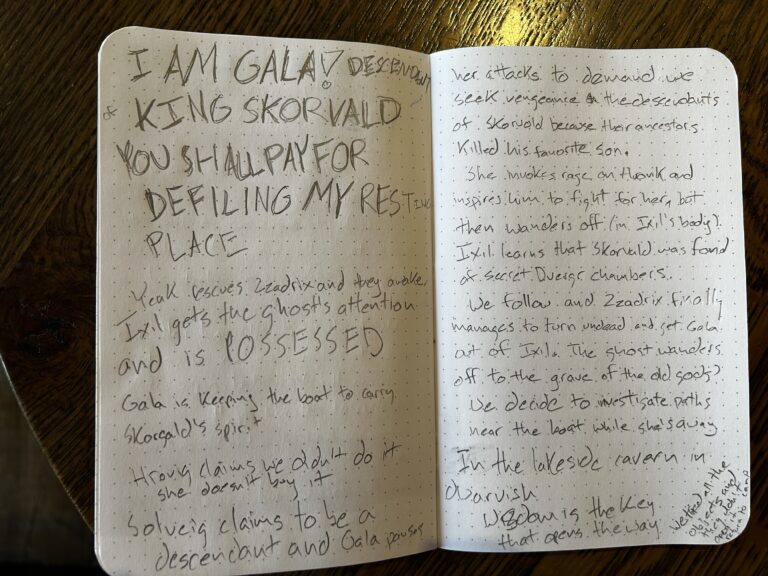 I AM GALA! DESCENDENT
of KING SKORVALD
YOU SHALL PAY FOR
DEFILING MY RESTING
PLACE
Yeak rescues Zzadrix and they awaken
Ixil gets the ghost's attention
and is POSSESSED
Gala is keeping the boat to carry
Skorgald's spirit
Hrovig claims we didn't do it
she doesn't buy it
Solveig claims to be a
descendant and Gala pauses
her attacks to demand we
seek vengeance on the descendants
of Skorvald because their ancestors
killed his favorite son.
She invokes rage on and
inspires him to fight for her, but
then wanders off (in Ixil's body).
Ixil learns that Skorvald was fond
of secret Duergr chambers.
We follow and Zzadrix finally
manages to turn undead and get Gala
out of Ixil. The ghost wanders
off to the grave of the old
We decide to investigate paths
near the boat while she's away
In the lakeside cavern in
Wisdom is the key
that opens the way
We tried all the
objects and
they didn't
return to camp